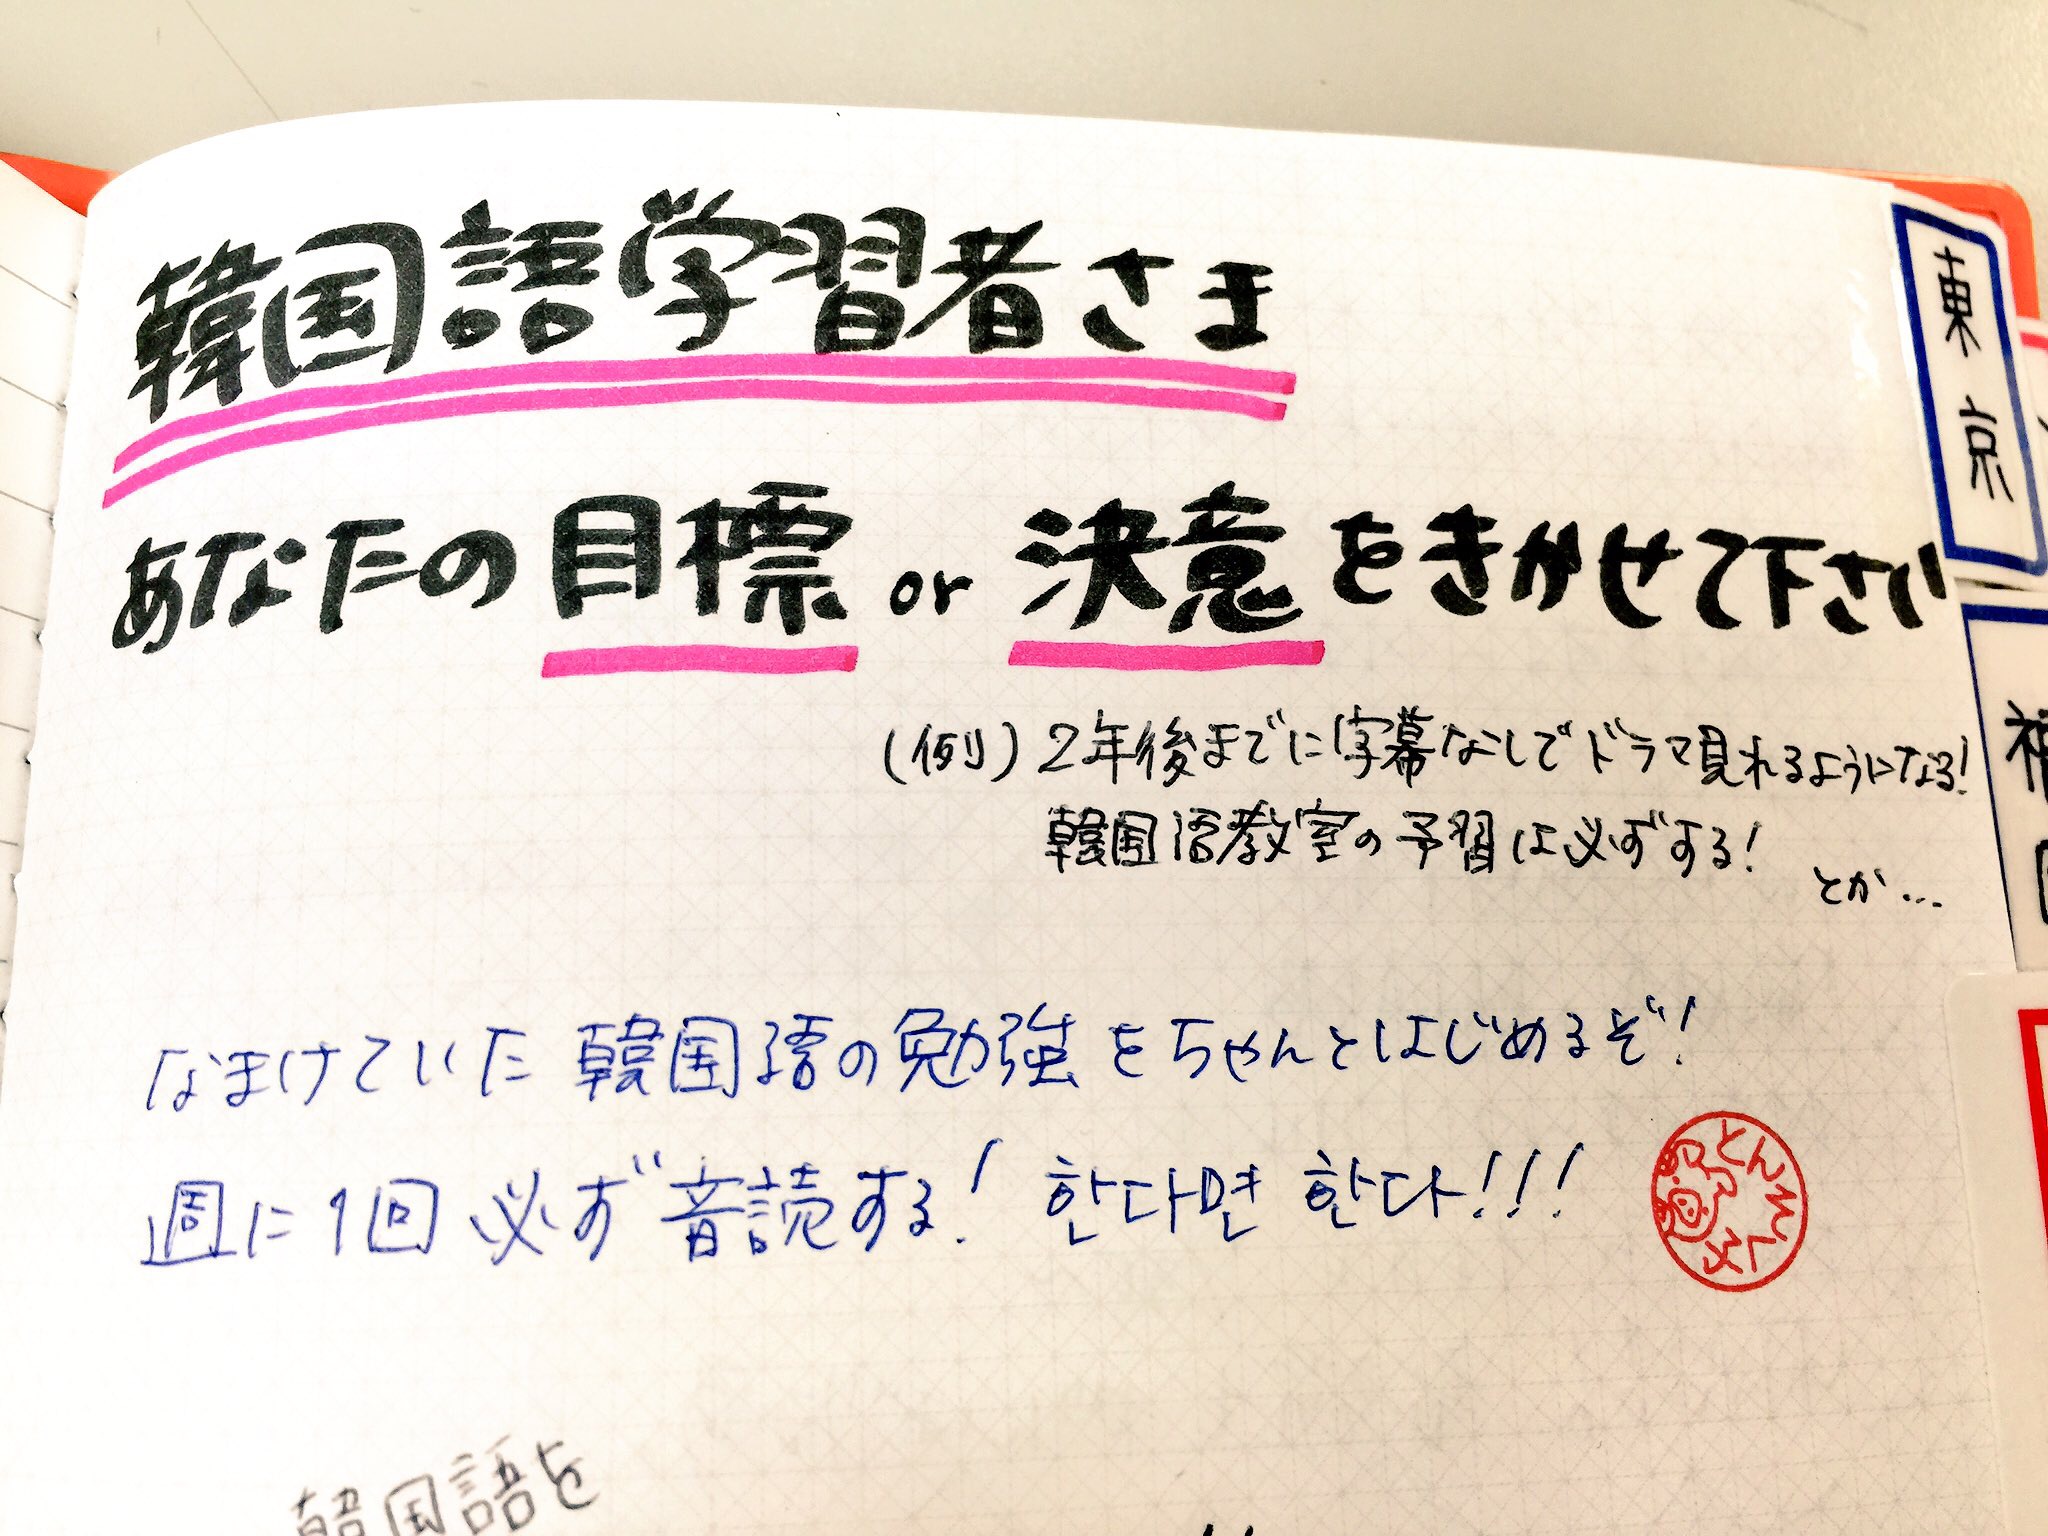 韓国語学習者さま
あなたの目標 or 決意をきかせて下さい
(例) 2年後までに字幕なしでドラマ見れるようになる!
韓国語教室の予習は必ずする!
とか…
なまけていた韓国語の勉強をちゃんとはじめるぞ!
週に1回必ず音読する! 한다면 한다!!!
韓国語を
東京